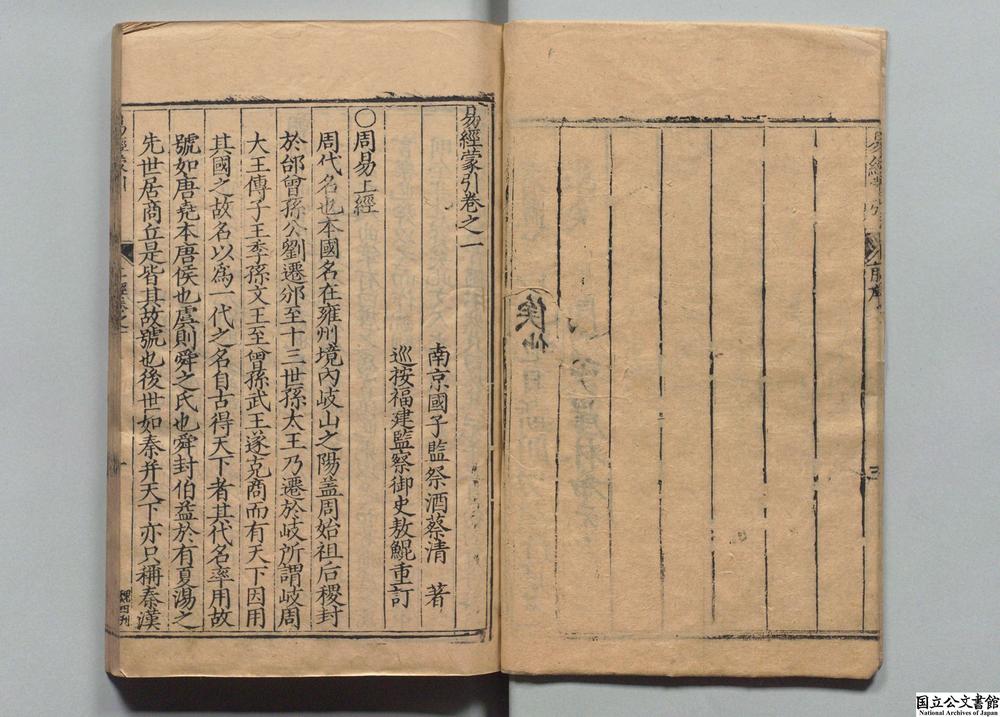 侯仙
三
易經蒙引卷之一
南京國子監祭酒蔡清　著
巡按福建監察御史敖鯤重訂
○周易上經
周代名也本國名在雍州境內岐山之陽蓋周始祖后稷封
於邰曾孫公劉遷邠至十三世孫太王乃遷於岐所謂岐周
大王傳子王季孫文王至曾孫武王遂克商而有天下因用
其國之故名以爲一代之名自古得天下者其代名率用故
號如唐堯本唐侯也虞則舜之氏也舜封伯益於有夏湯之
先世居商丘是皆其故號也後世如秦并天下亦只稱秦漢
易經蒙引
上經卷之一
一
国立公文書館
National Archives of Japan